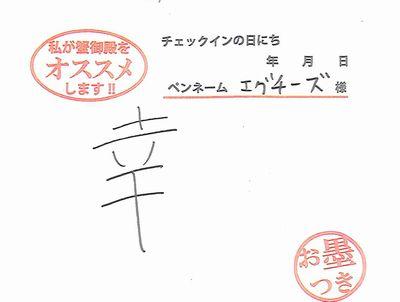 私が蟹御殿を
オススメ
します!!
チェックインの日にち
年 月 日
ペンネーム エグチーズ 様
幸
お墨
つき